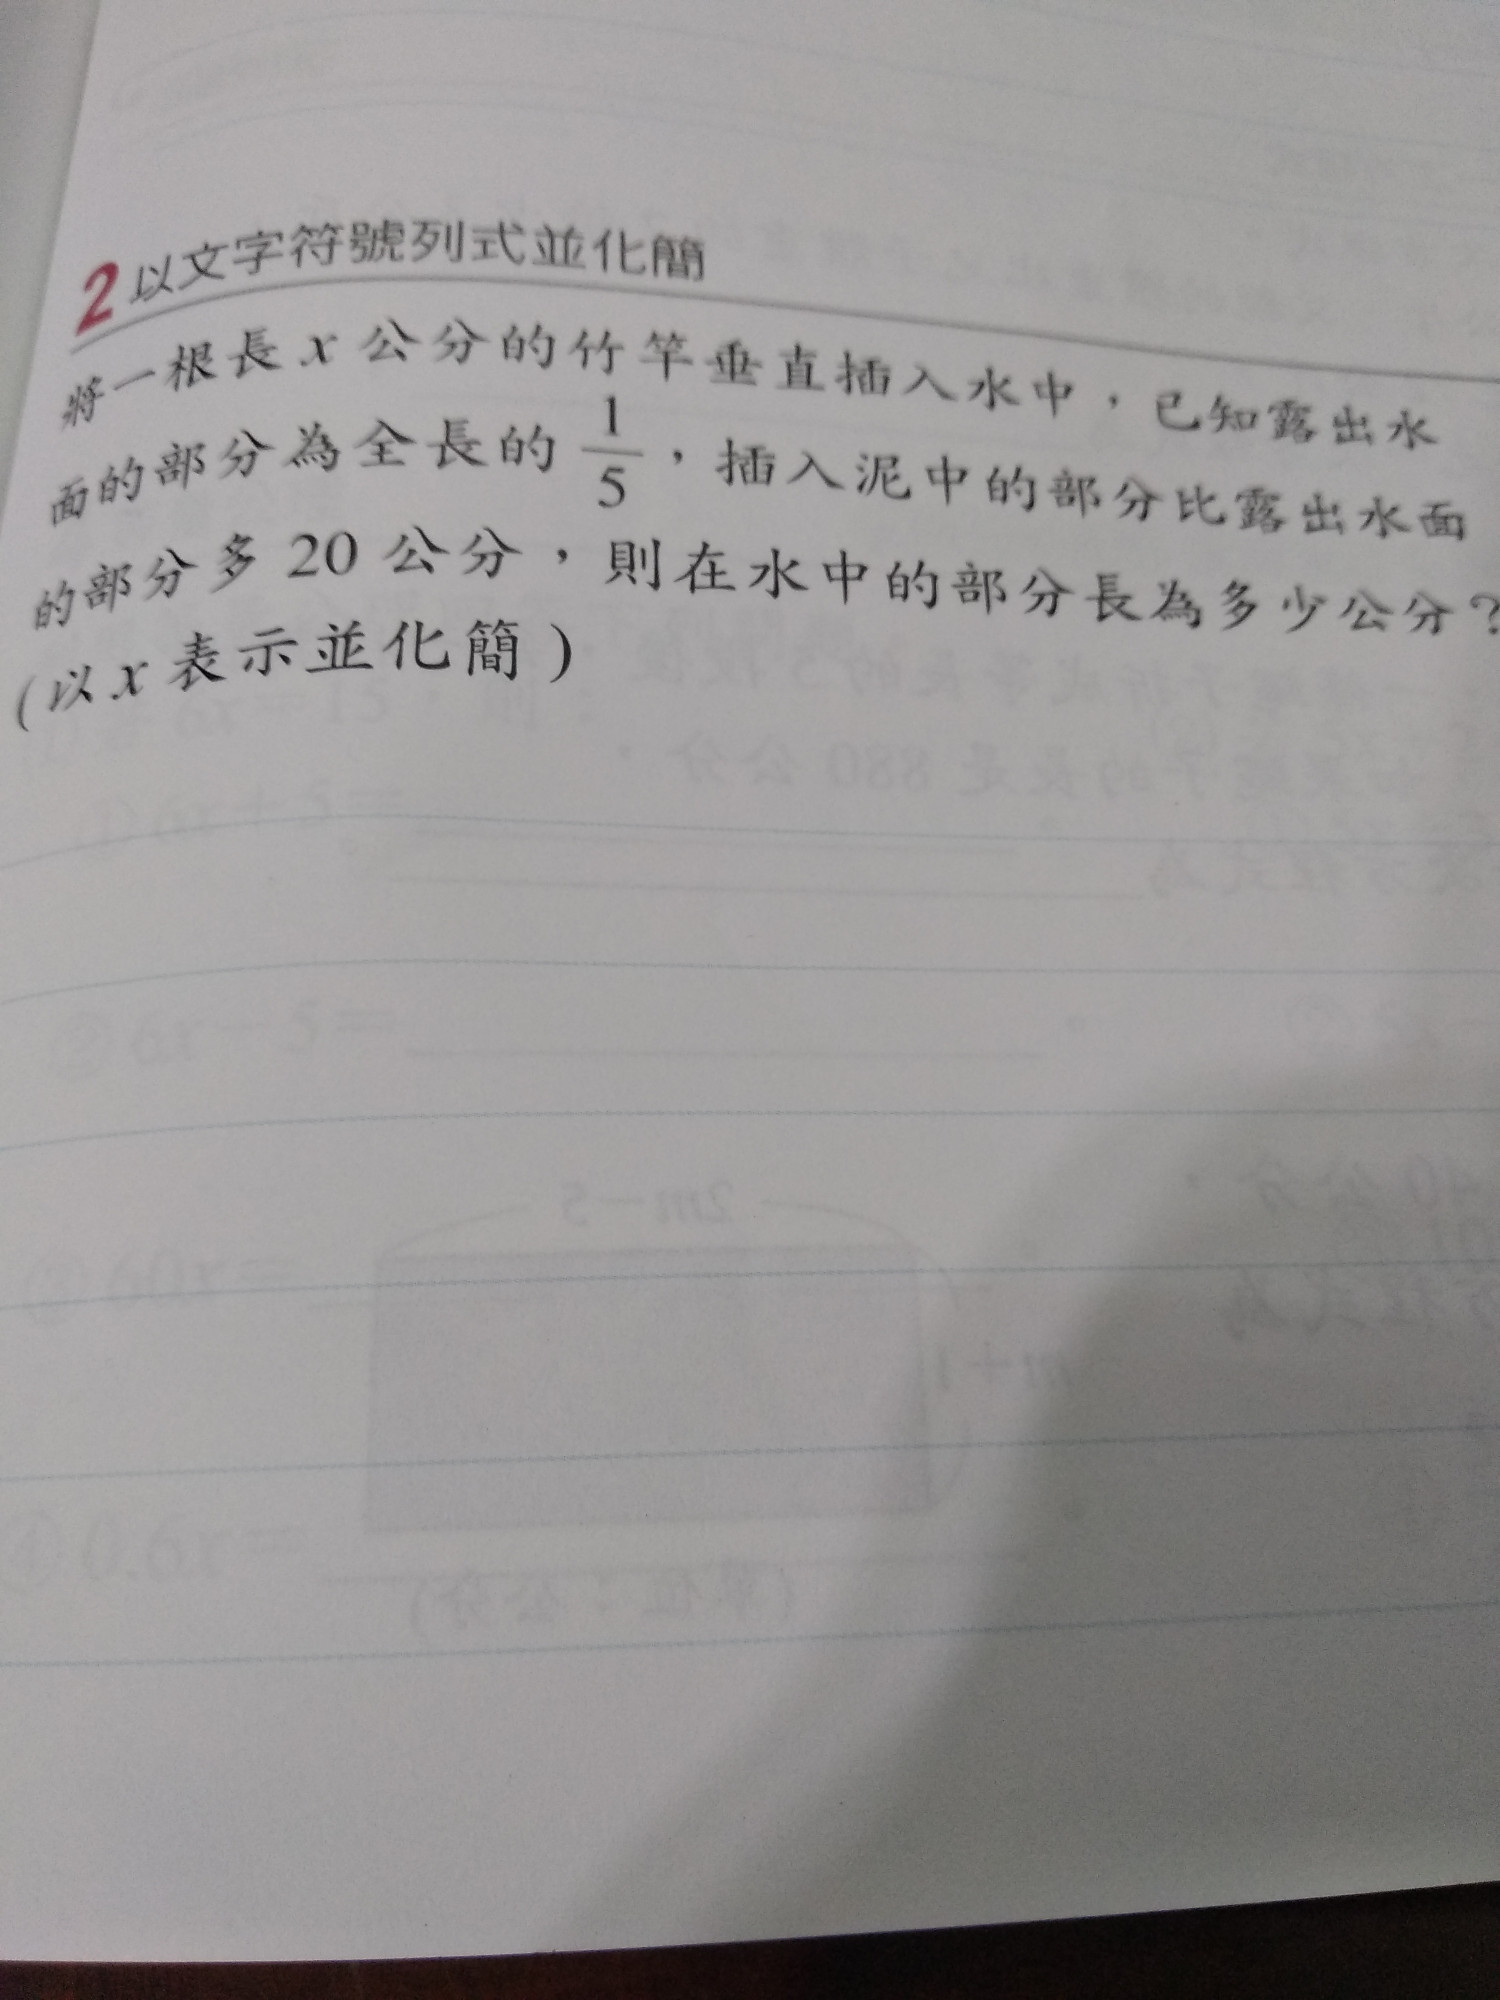 2 以文字符號列式並化簡
將一根長 x 公分的竹竿垂直插入水中，已知露出水
面的部分為全長的 1/5，插入泥中的部分比露出水面
的部分多 20 公分，則在水中的部分長為多少公分？
(以 x 表示並化簡)